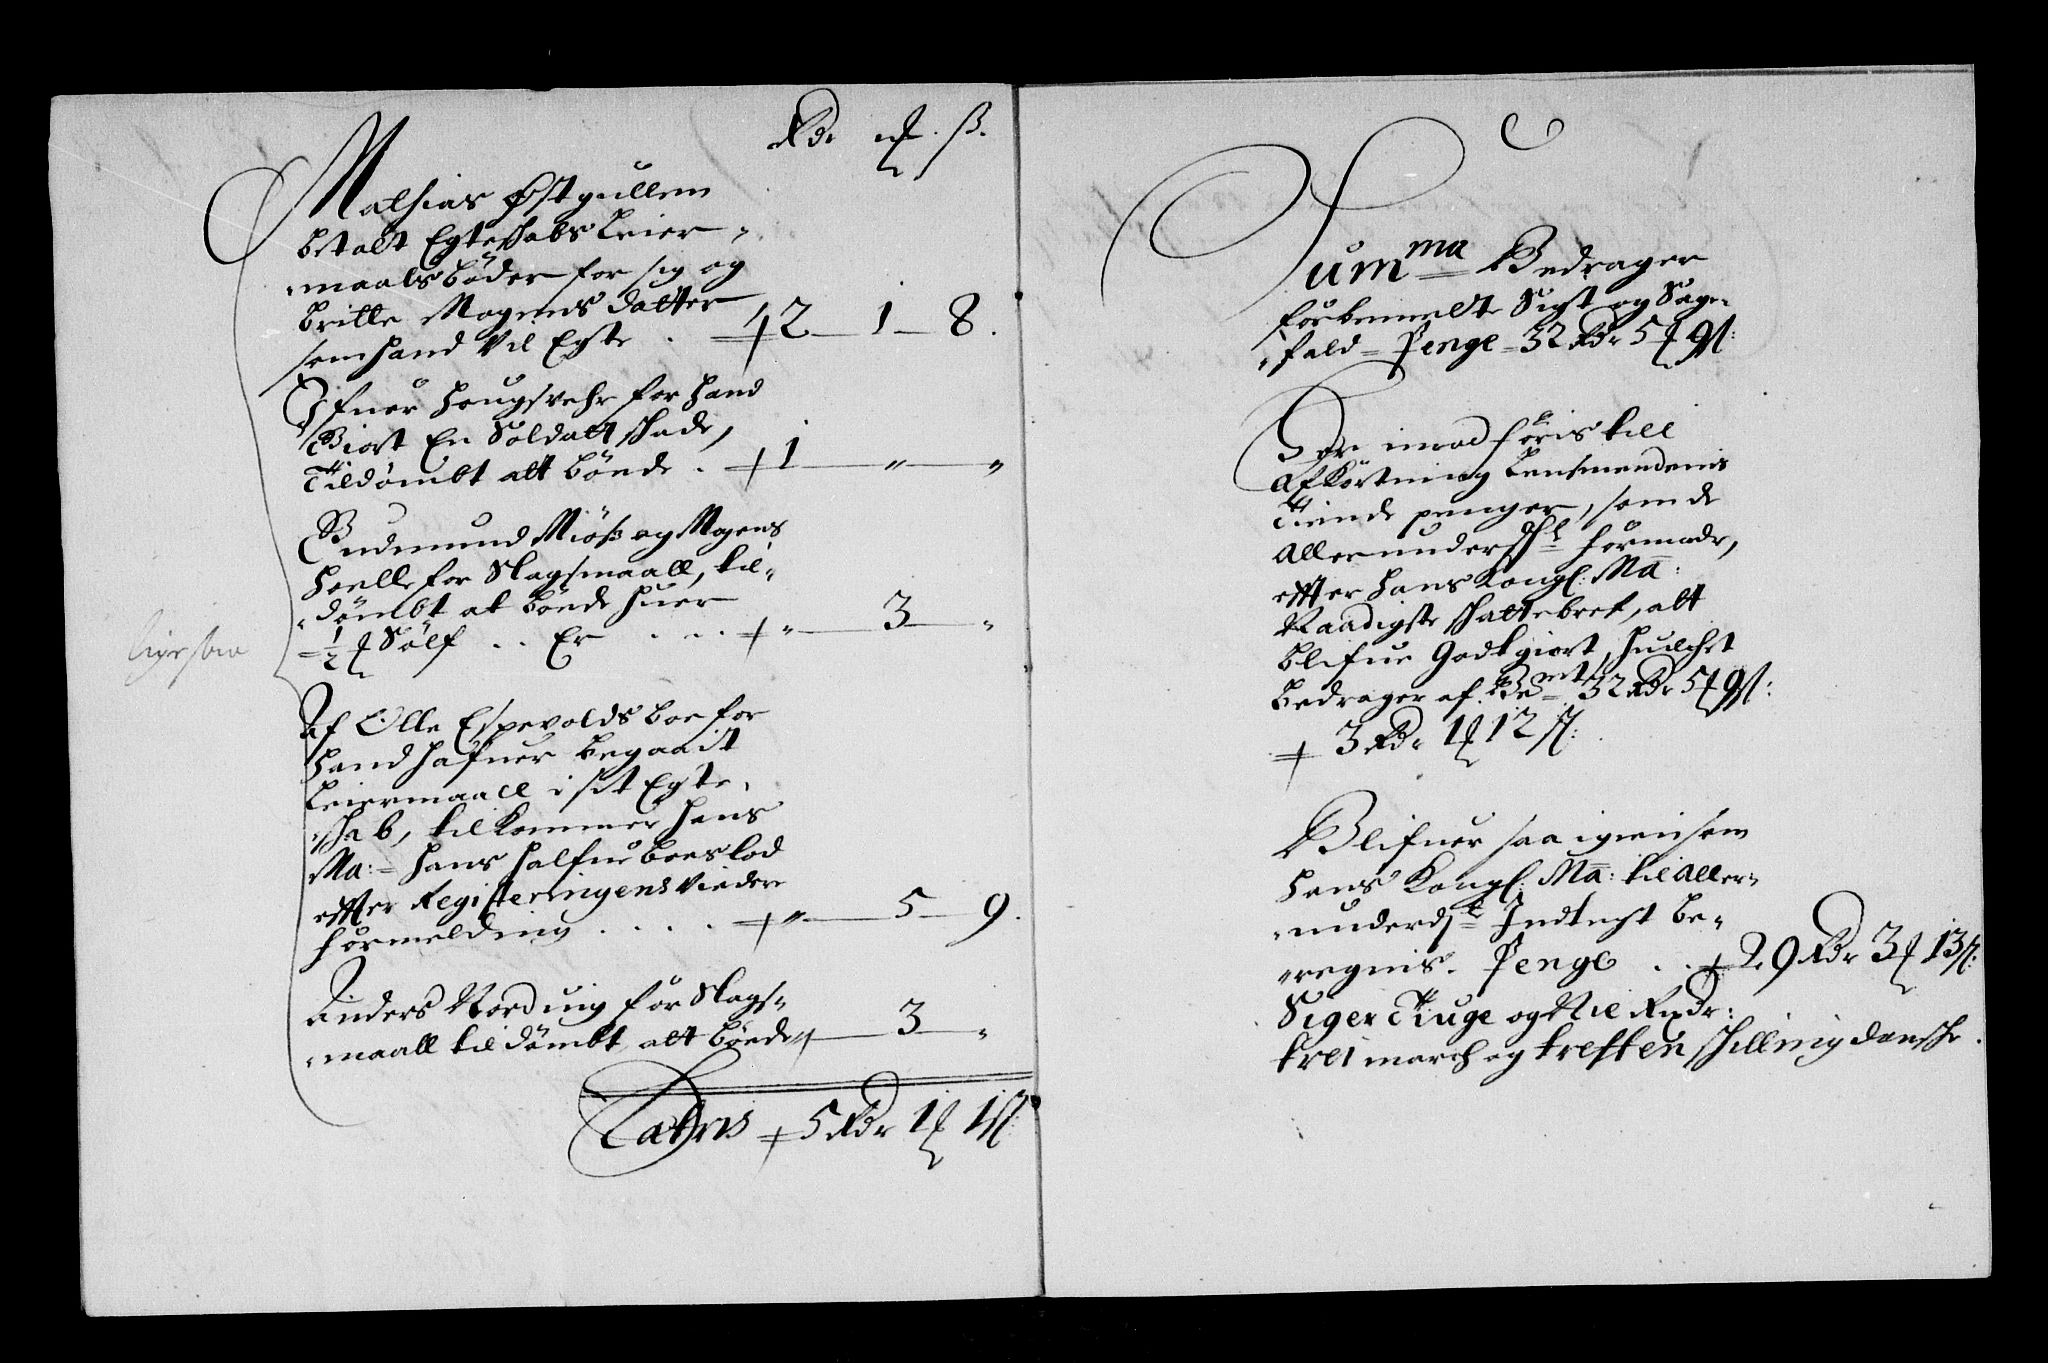 Rdr ɱ. ß.
Mathias Østgullem
betalt Egteskabs Leier-
-maals bøder for sig og
britte Mogens datter
som hand vil Egte . 2 — 1 — 8.
Efuer Hougsvehr for hand
Giort En Soldatt skade,
Tildømbt att bøede . 1 — „ — „
Gudmund Miøß og Mogens
Hoelle for Slagsmaall, til-
-dømbt at bøede huer
½ ɱ Sølf .. Er ... „ — 3 — „
Af Olle Espevolds boe for
hand hafuer begaait
Leiermaall i sit Egte-
-skab, tilkommer Hans
Ma: Hans halfue boeslod
effter Registeringens videre
formelding .... „ — 5 — 9.
Anders Nording for Slags-
-maall tildømbt att bøede „ — 3 — „
Lateris 5 Rdr 1 ɱ 1 ß:
Ligesaa
Summma Bedrager
forbemeldte Sigt og Sage-
-fald = Penge = 32 Rdr 5 ɱ 9 ß:
Der imod føris till
Afkortning Lensmendenis
Tiende penger, som de
Allerunderst formode,
effter Hans Kongl: Ma:
Naadigste skattebref, att
blifue Godtgiort, huilchet
bedrager af. bemt 32 Rdr 5 ɱ 9 ß:
3 Rdr 1 ɱ 12 ß:
Blifuer saa igien som
Hans Kongl: Ma: til Aller-
-underdst Indtegt be-
-regnis. Penge .. 29 Rdr 3 ɱ 13 ß:
Siger Tiuge og Nie Rixdr:
trei march og tretten skilling danske.